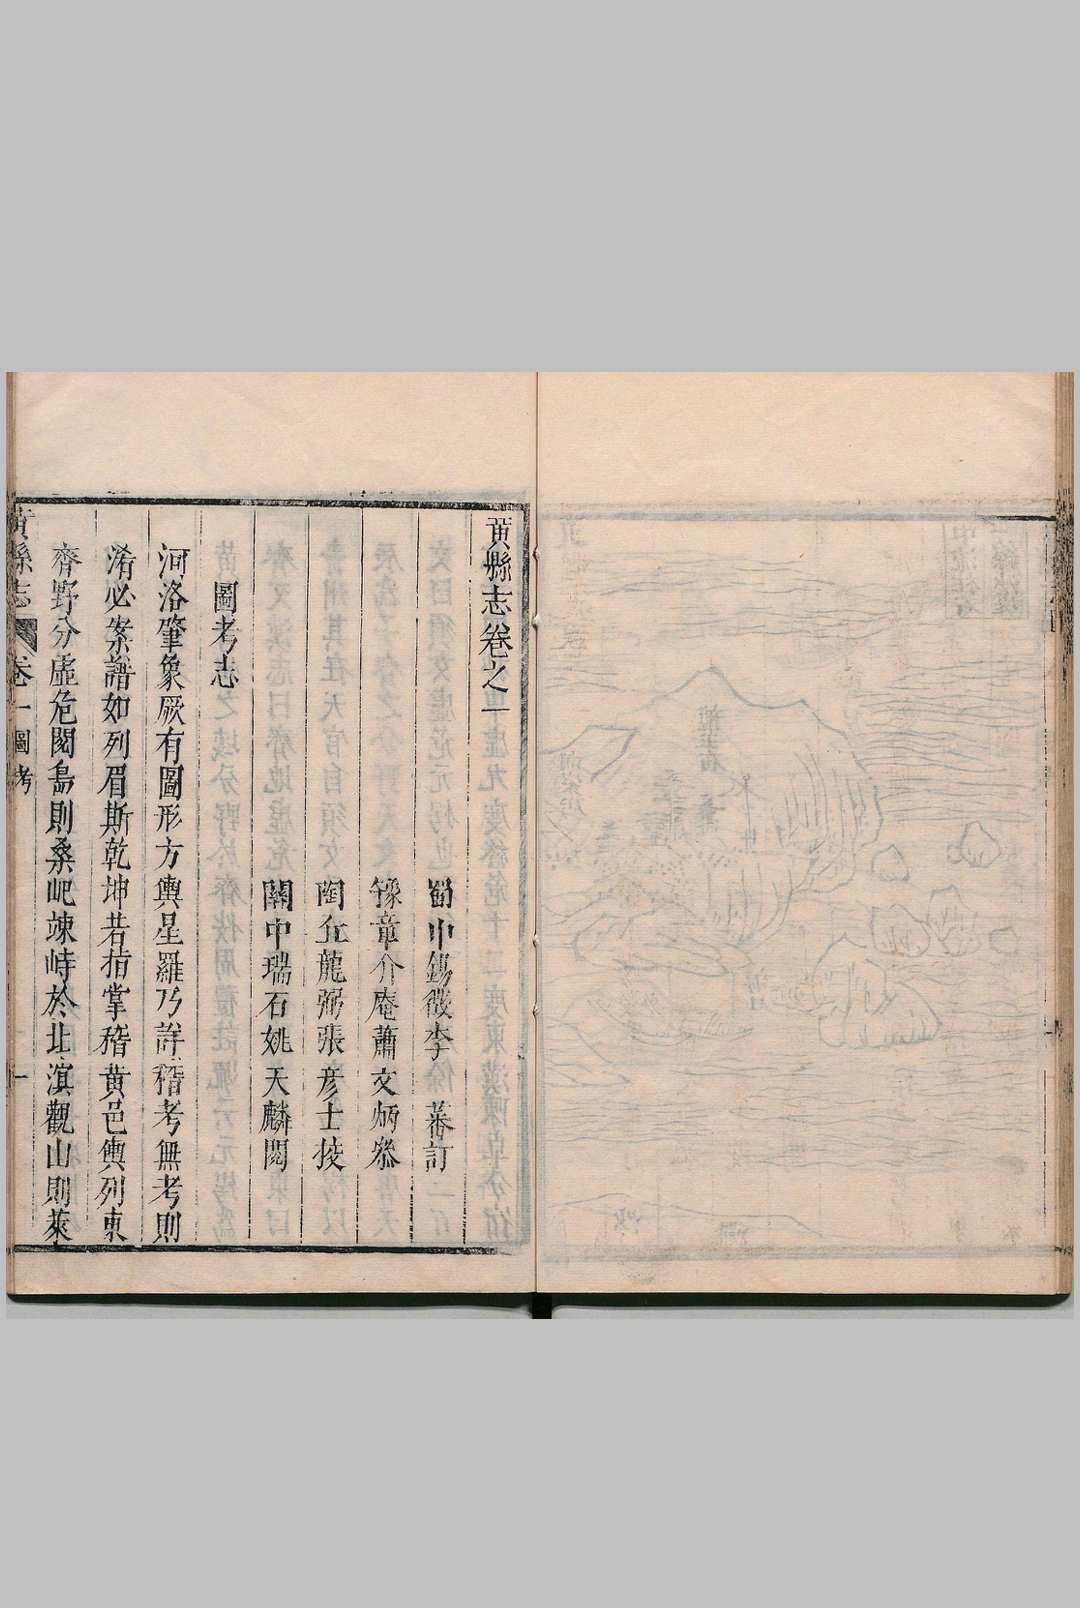 黃縣志卷之一
蜀中錫徵李 蕃訂
豫章介庵蕭文炳叅
陶丘龍弼張彥士挍
關中瑞石姚天麟閱
圖考志
河洛肇象厥有圖形方輿星羅乃詳稽考無考則
淆必案譜如列眉斯乾坤若指掌稽黃邑輿列東
齊野分虛危閱島則桑岠竦峙於北溟觀山則萊
黃縣志 卷一圖考 一